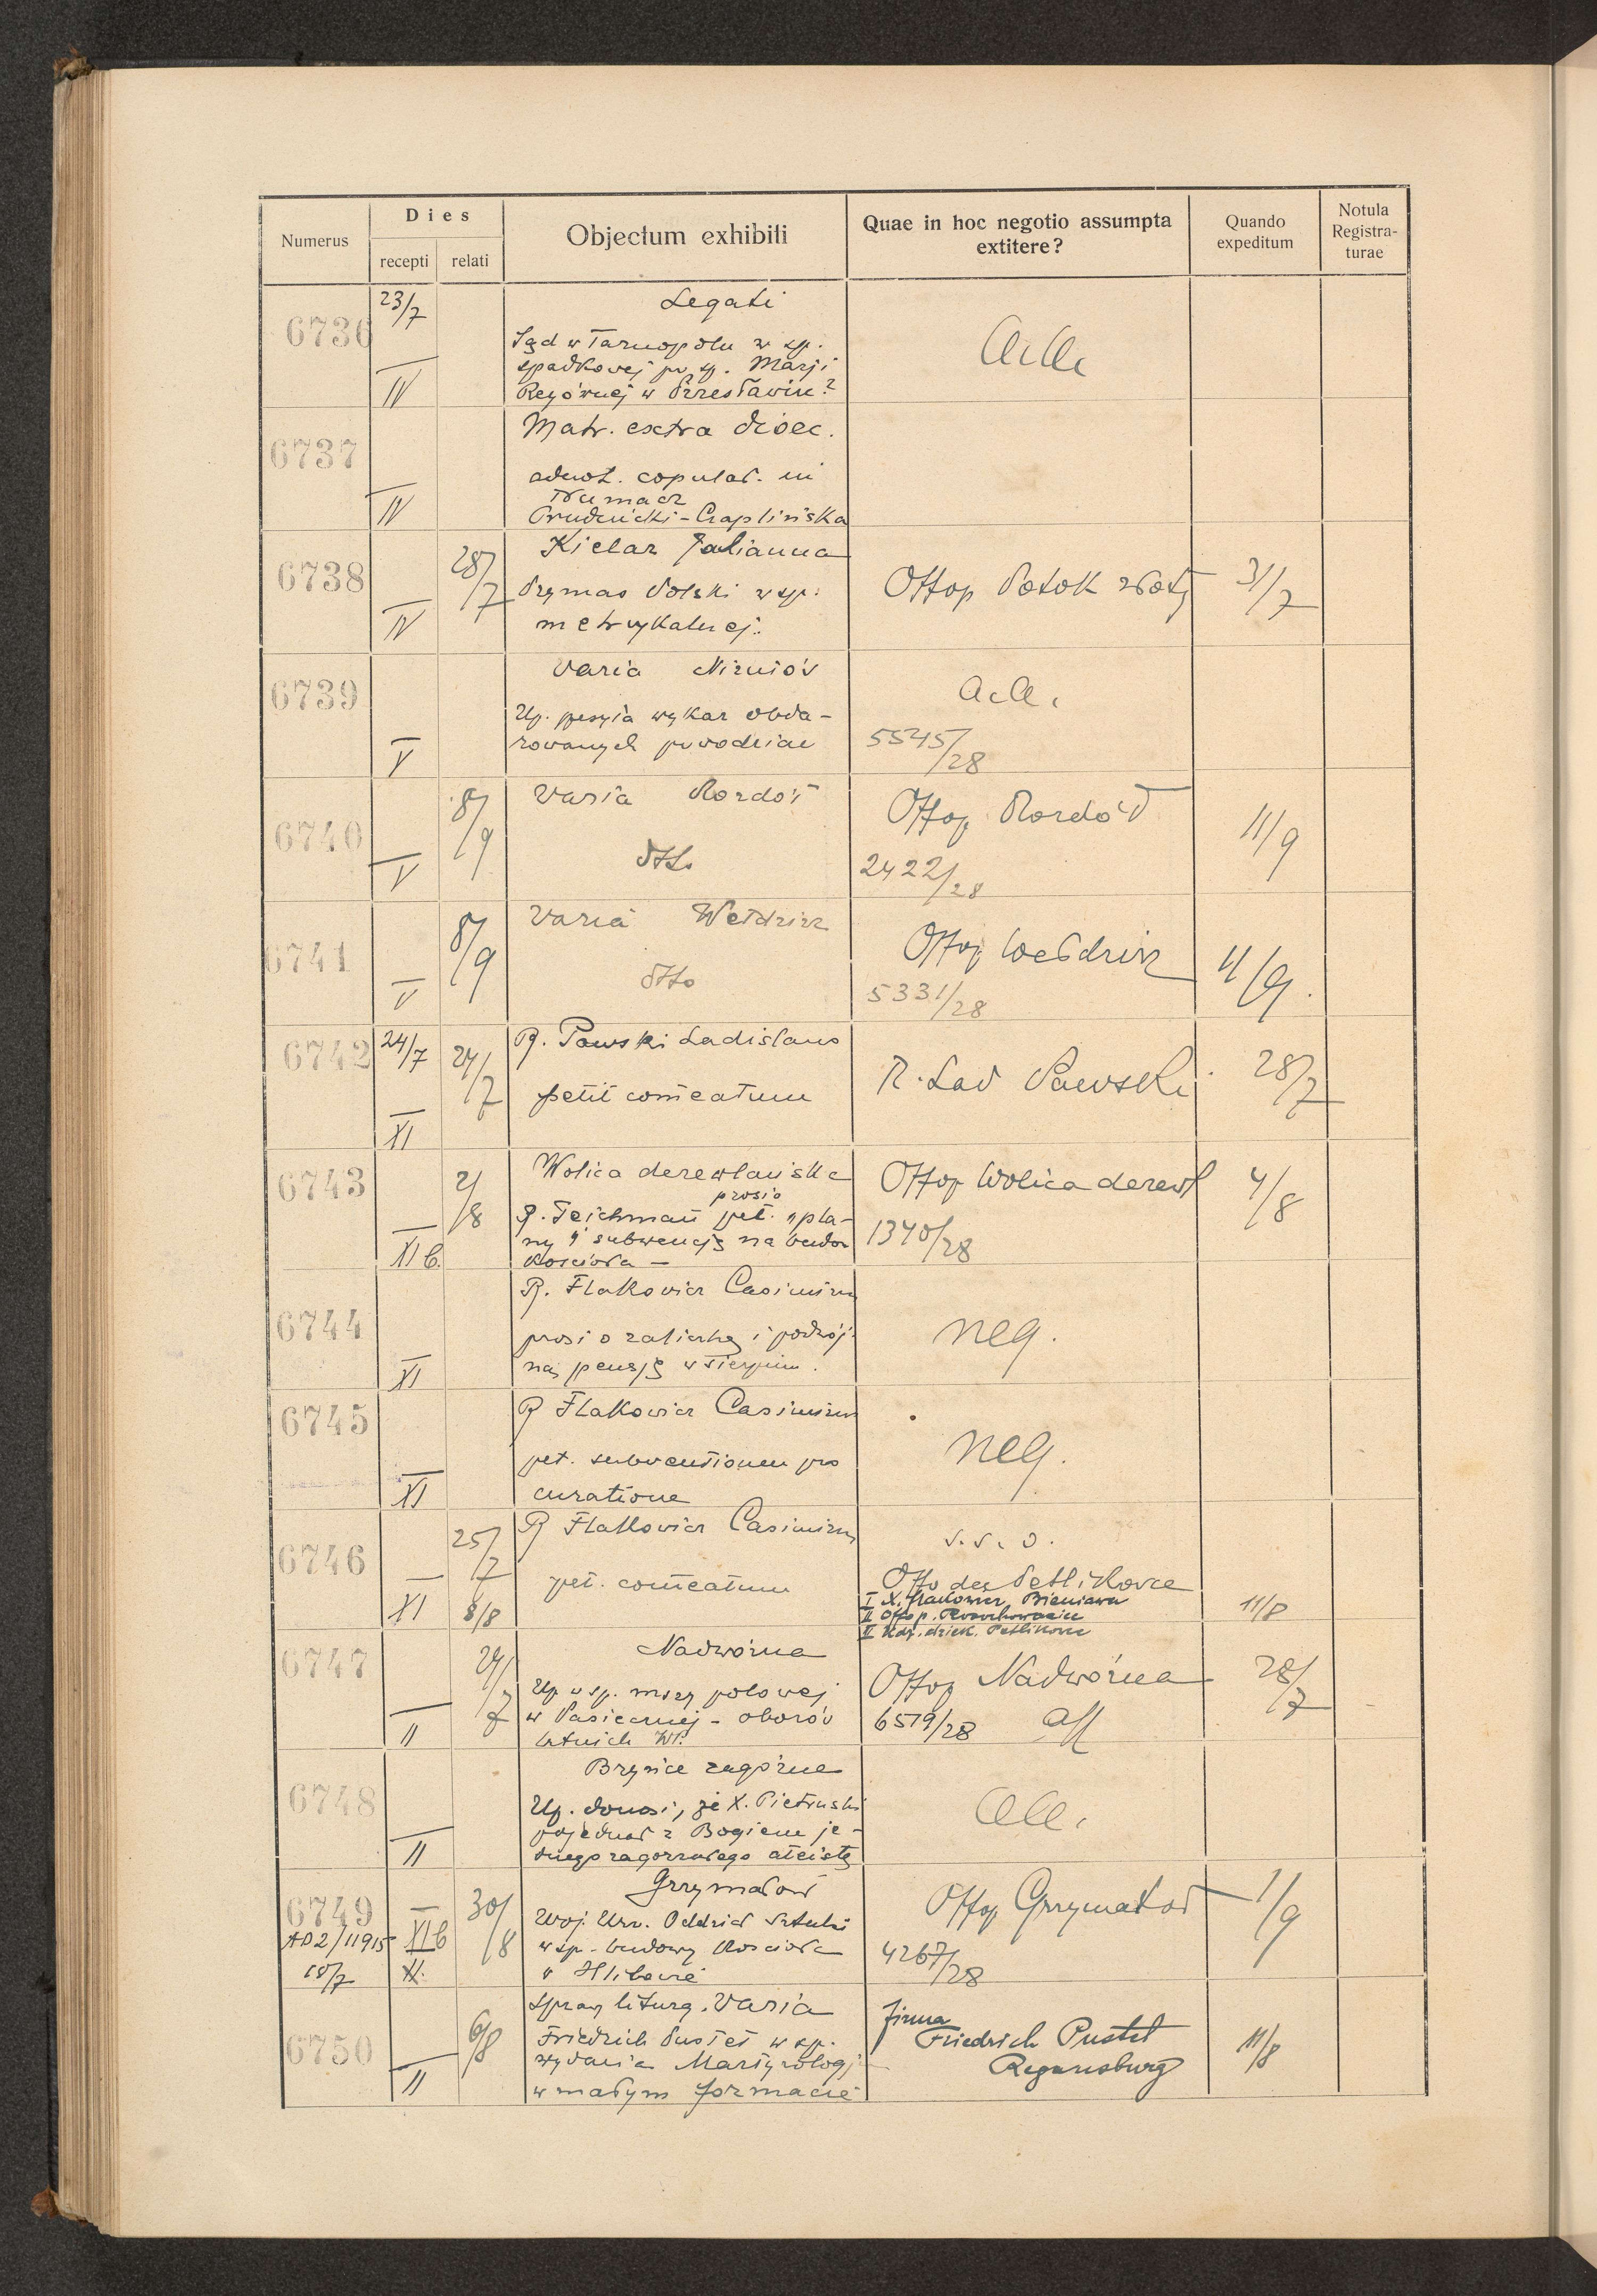 Numerus
Dies
recepti
relati
Objectum exhibiti
Quae in hoc negotio assumpta
extitere?
Quando
expeditum
Notula
Registra-
turae
6736
23/7
IV
Legati
Sąd w Tarnopolu w sp.
spadkowej po śp. Marji
w
6737
IV
Matr. extra dioec.
adnot. copulat. in
Tłumacz
Prudnicki - Czaplińska
6738
IV
28/7
Kielar Julianna
Prymas Polski w sp.
metrykalnej.
Offop Potok złoty
31/7
6739
V
Varia Niżniów
Up. wykaz obda-
rowanych powodzian
5545/28
6740
V
8/9
Varia Rozdół
dtto
Offop Rozdół
2422/28
11/9
6741
V
8/9
Varia Wełdzirz
dtto
Offop Wełdzirz
5331/28
11/9.
6742
24/7
XI
24/7
R. Pawski Ladislaus
petit comeatum
R. Lad Pawski
28/7
6743
XI b.
2/8
Wolica derewlańska
prosi o
R. Teichman pet. "pla-
ny" i subwencję na budow
kościoła —
Offop Wolica derewl
1340/28
4/8
6744
XI
R. Flakowicz Casimirus
prosi o zaliczkę i podwój-
ną pensję w sierpniu.
neg.
6745
XI
R Flakowicz Casimirus
pet. subventionem pro
curatione
neg.
6746
XI
25/7
8/8
R Flakowicz Casimirus
pet. comeatum
v. s. o.
Offo dec Petlikowce
I X. Flakowicz Bieniawa
II Offop.
II Urz. dziek. Petlikowce
11/8
6747
II
24/7
Nadwórna
Up w sp. mszy polowej
w Pasiecznej - obozów
letnich
Offop Nadwórna
6519/28
28/7
6748
II
Brynce zagórne
Up. donosi, że X. Pietruski
pojednał z Bogiem je-
dnego zagorzałego ateistę
6749
AD2/11915
18/7
XI b
X.
30/8
Grzymałów
Woj. Urz. Oddział Sztuki
w sp. budowy kościoła
w Hlibowie
Offop Grzymałów
4267/28
1/9
6750
II
6/8
Spraw liturg. Varia
Friedrich Pustet w sp.
wydania Martyrologj
w małym formacie
firma
Friedrich Pustet
Regensburg
11/8